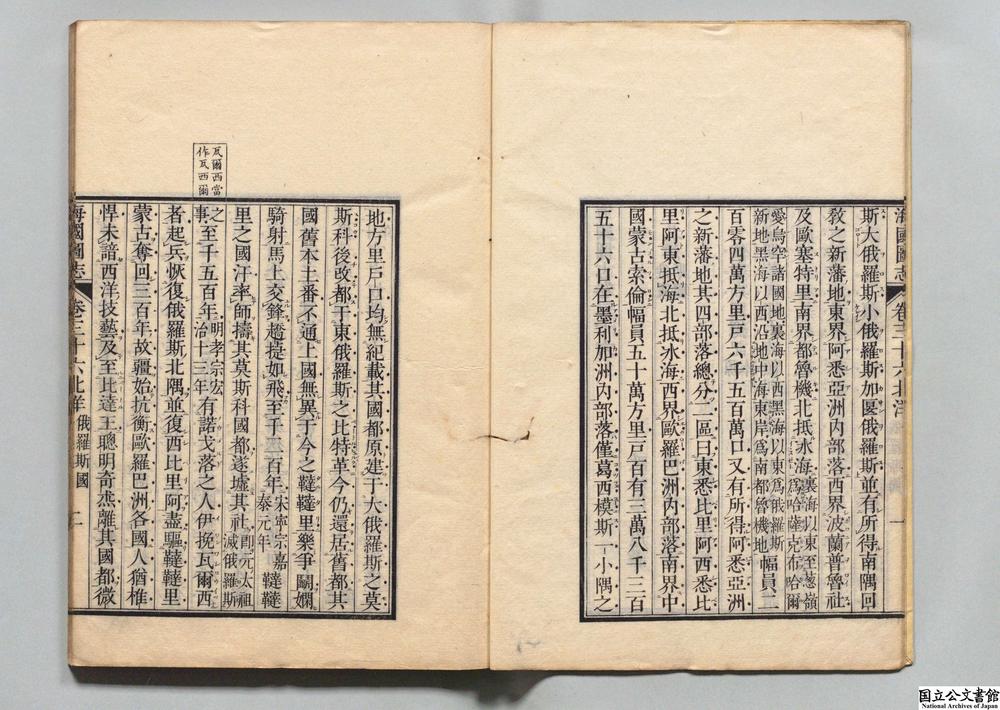 海國圖志 卷三十六北洋 一
斯大俄羅斯小俄羅斯加匽俄羅斯並有所得南隅回
敎之新藩地東界阿悉亞洲內部落西界波蘭普魯社
及歐塞特里南界都魯機北抵氷海裏海以東至葱嶺爲哈薩克布哈爾
愛烏罕諸國地裏海以西黑海以東爲俄羅斯新地黑海以西沿地中海東岸爲南都魯機地幅員二
百零四萬方里戸六千五百萬口又有所得阿悉亞洲
之新藩地其四部落總分二區曰東悉比里阿西悉比
里阿東抵海北抵氷海西界歐羅巴洲內部落南界中
國蒙古索倫幅員五十萬方里戸百有三萬八千三百
五十六口在墨利加洲內部落僅葛西模斯一小隅之
地方里戸口均無紀載其國都原建于大俄羅斯之莫
斯科後改都于東俄羅斯之比特革今仍還居舊都其
國舊本土番不通上國無異于今之韃韃里樂爭鬭嫻
騎射馬上交鋒趫捷如飛至千二百年宋寧宗嘉泰元年韃韃
里之國汗率師擣其莫斯科國都遂墟其社卽元太祖滅俄羅斯
之事至千五百年明孝宗宏治十三年有諾戈落之人伊挽瓦爾西
者起兵恢復俄羅斯北隅並復西比里阿盡驅韃韃里
蒙古奪回三百年故疆始抗衡歐羅巴洲各國人猶椎
悍未諳西洋技藝及至比達王聰明奇杰離其國都微
海國圖志 卷三十六北洋 俄羅斯國 二
瓦爾西當
作瓦西爾
国立公文書館
National Archives of Japan